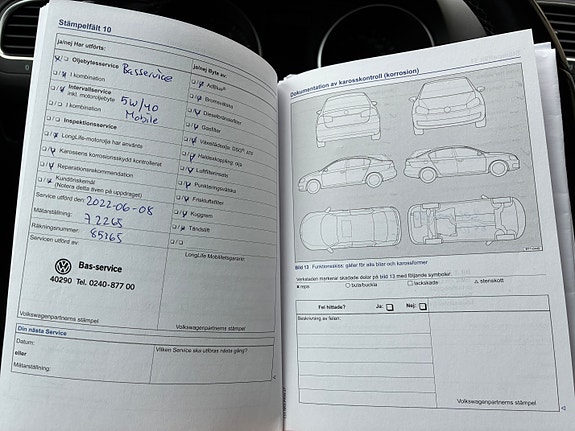 Stämpelfält 10
ja/nej Har utförts:
Oljebytesservice Basservice
I kombination
Intervallservice
inkl. motoroljebyte 5W/40
I kombination Mobile
Inspektionsservice
LongLife-motorolja har använts
Karossens korrosionsskydd kontrollerat
Reparationsrekommendation
Kundönskemål
(Notera detta även på uppdraget)
Service utförd den: 2022-06-08
Mätarställning: 72265
Räkningsnummer: 85365
Servicen utförd av:
Bas-service
40290 Tel. 0240-877 00
Volkswagenpartnerns stämpel
ja/nej Byte av:
AdBlue®
Bromsvätska
Dieselbränslefilter
Gasfilter
Växellådsolja DSG®, ATF
Haldexkoppling olja
Luftfilterinsats
Punkteringsvätska
Friskluftsfilter
Kuggrem
Tändstift
LongLife Mobilitetsgaranti
Volkswagenpartnerns stämpel
Din nästa Service
Datum:
eller
Mätarställning:
Vilken Service ska utföras nästa gång?
Dokumentation av karosskontroll (korrosion)
Bild 13 Funktionsskiss: gäller för alla bilar och karossformer
Verkstaden markerar skadade delar på bild 13 med följande symboler:
x repa ○ bula/buckla □ lackskada △ stenskott
Fel hittade? Ja: Nej:
Beskrivning av felen:
Volkswagenpartnerns stämpel